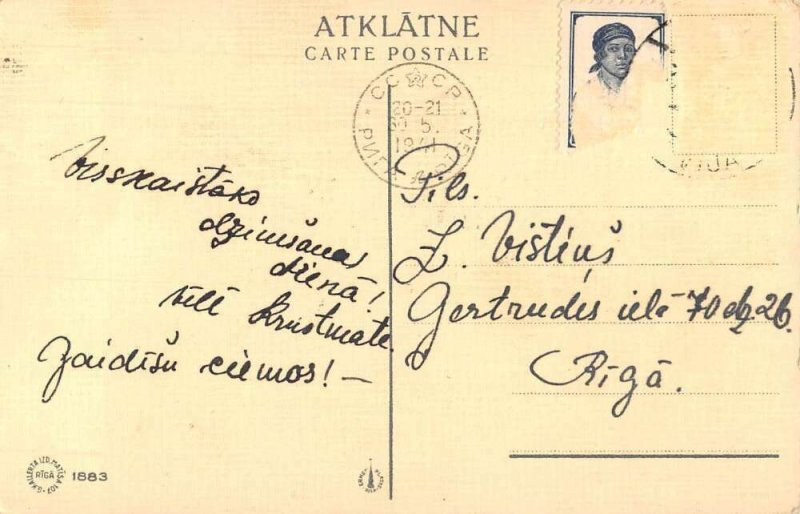 ATKLĀTNE
CARTE POSTALE
СС СР
20-21
5.
1941
РИГА RIGA
RIGA
Visskaistāko
dzimšanas
dienā!
vēlē Krustmāte.
Gaidīšu ciemos! —
Pils.
Z. Vištiņš
Gertrudes ielā 70 dz. 26.
Rīgā.
RĪGĀ
1883